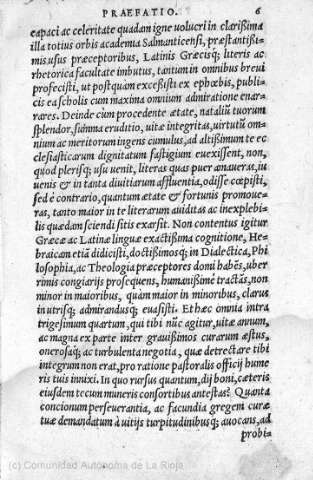 PRAEFATIO. 6
capaci ac celeritate quadam igne volucri in clarißima
illa totius orbis academia Salmanticensi, præstantißi-
mis usus præceptoribus, Latinis Græcisq; literis ac
rhetorica facultate imbutus, tantum in omnibus brevi
profecisti, ut postquàm excessisti ex ephœbis, publi-
cis ea scholis cum maxima omnium admiratione enar-
rares. Deinde cùm procedente ætate, nataliũ tuorum
splendor, summa eruditio, vitæ integritas, virtutũ om-
nium ac meritorum ingens cumulus, ad altißimum te ec
clesiasticarum dignitatum fastigium euexissent, non,
quod plerisq; usu uenit, literas quas puer amaueras, iu-
uenis & in tanta diuitiarum affluentia, odisse cœpisti,
sed è contrario, quantum ætate & fortunis promoue-
ras, tanto maior in te literarum auiditas ac inexplebi-
lis quædam sciendi sitis exarsit. Non contentus igitur
Græcæ ac Latinæ linguæ exactißima cognitione, He-
braicam etiã didicisti, doctißimosq; in Dialectica, Phi
losophia, ac Theologia præceptores domi habẽs, uber
rimis congiarijs prosequens, humanißimè tractãs, non
minor in maioribus, quàm maior in minoribus, clarus
in utrisq; admirandusq; euasisti. Et hæc omnia intra
trigesimum quartum, qui tibi nũc agitur, uitæ annum,
ac magna ex parte inter grauißimos curarum æstus,
onerosaq; ac turbulenta negotia, quæ detrectare tibi
integrum non erat, pro ratione pastoralis officij hume
ris tuis innixi. In quo rursus quantum, dij boni, cæteris
eiusdem tecum muneris consortibus antestas? Quanta
concionum perseuerantia, ac facundia gregem curæ
tuæ demandatum à uitijs turpitudinibusq; auocans, ad
probi-
(c) Comunidad Autónoma de La Rioja